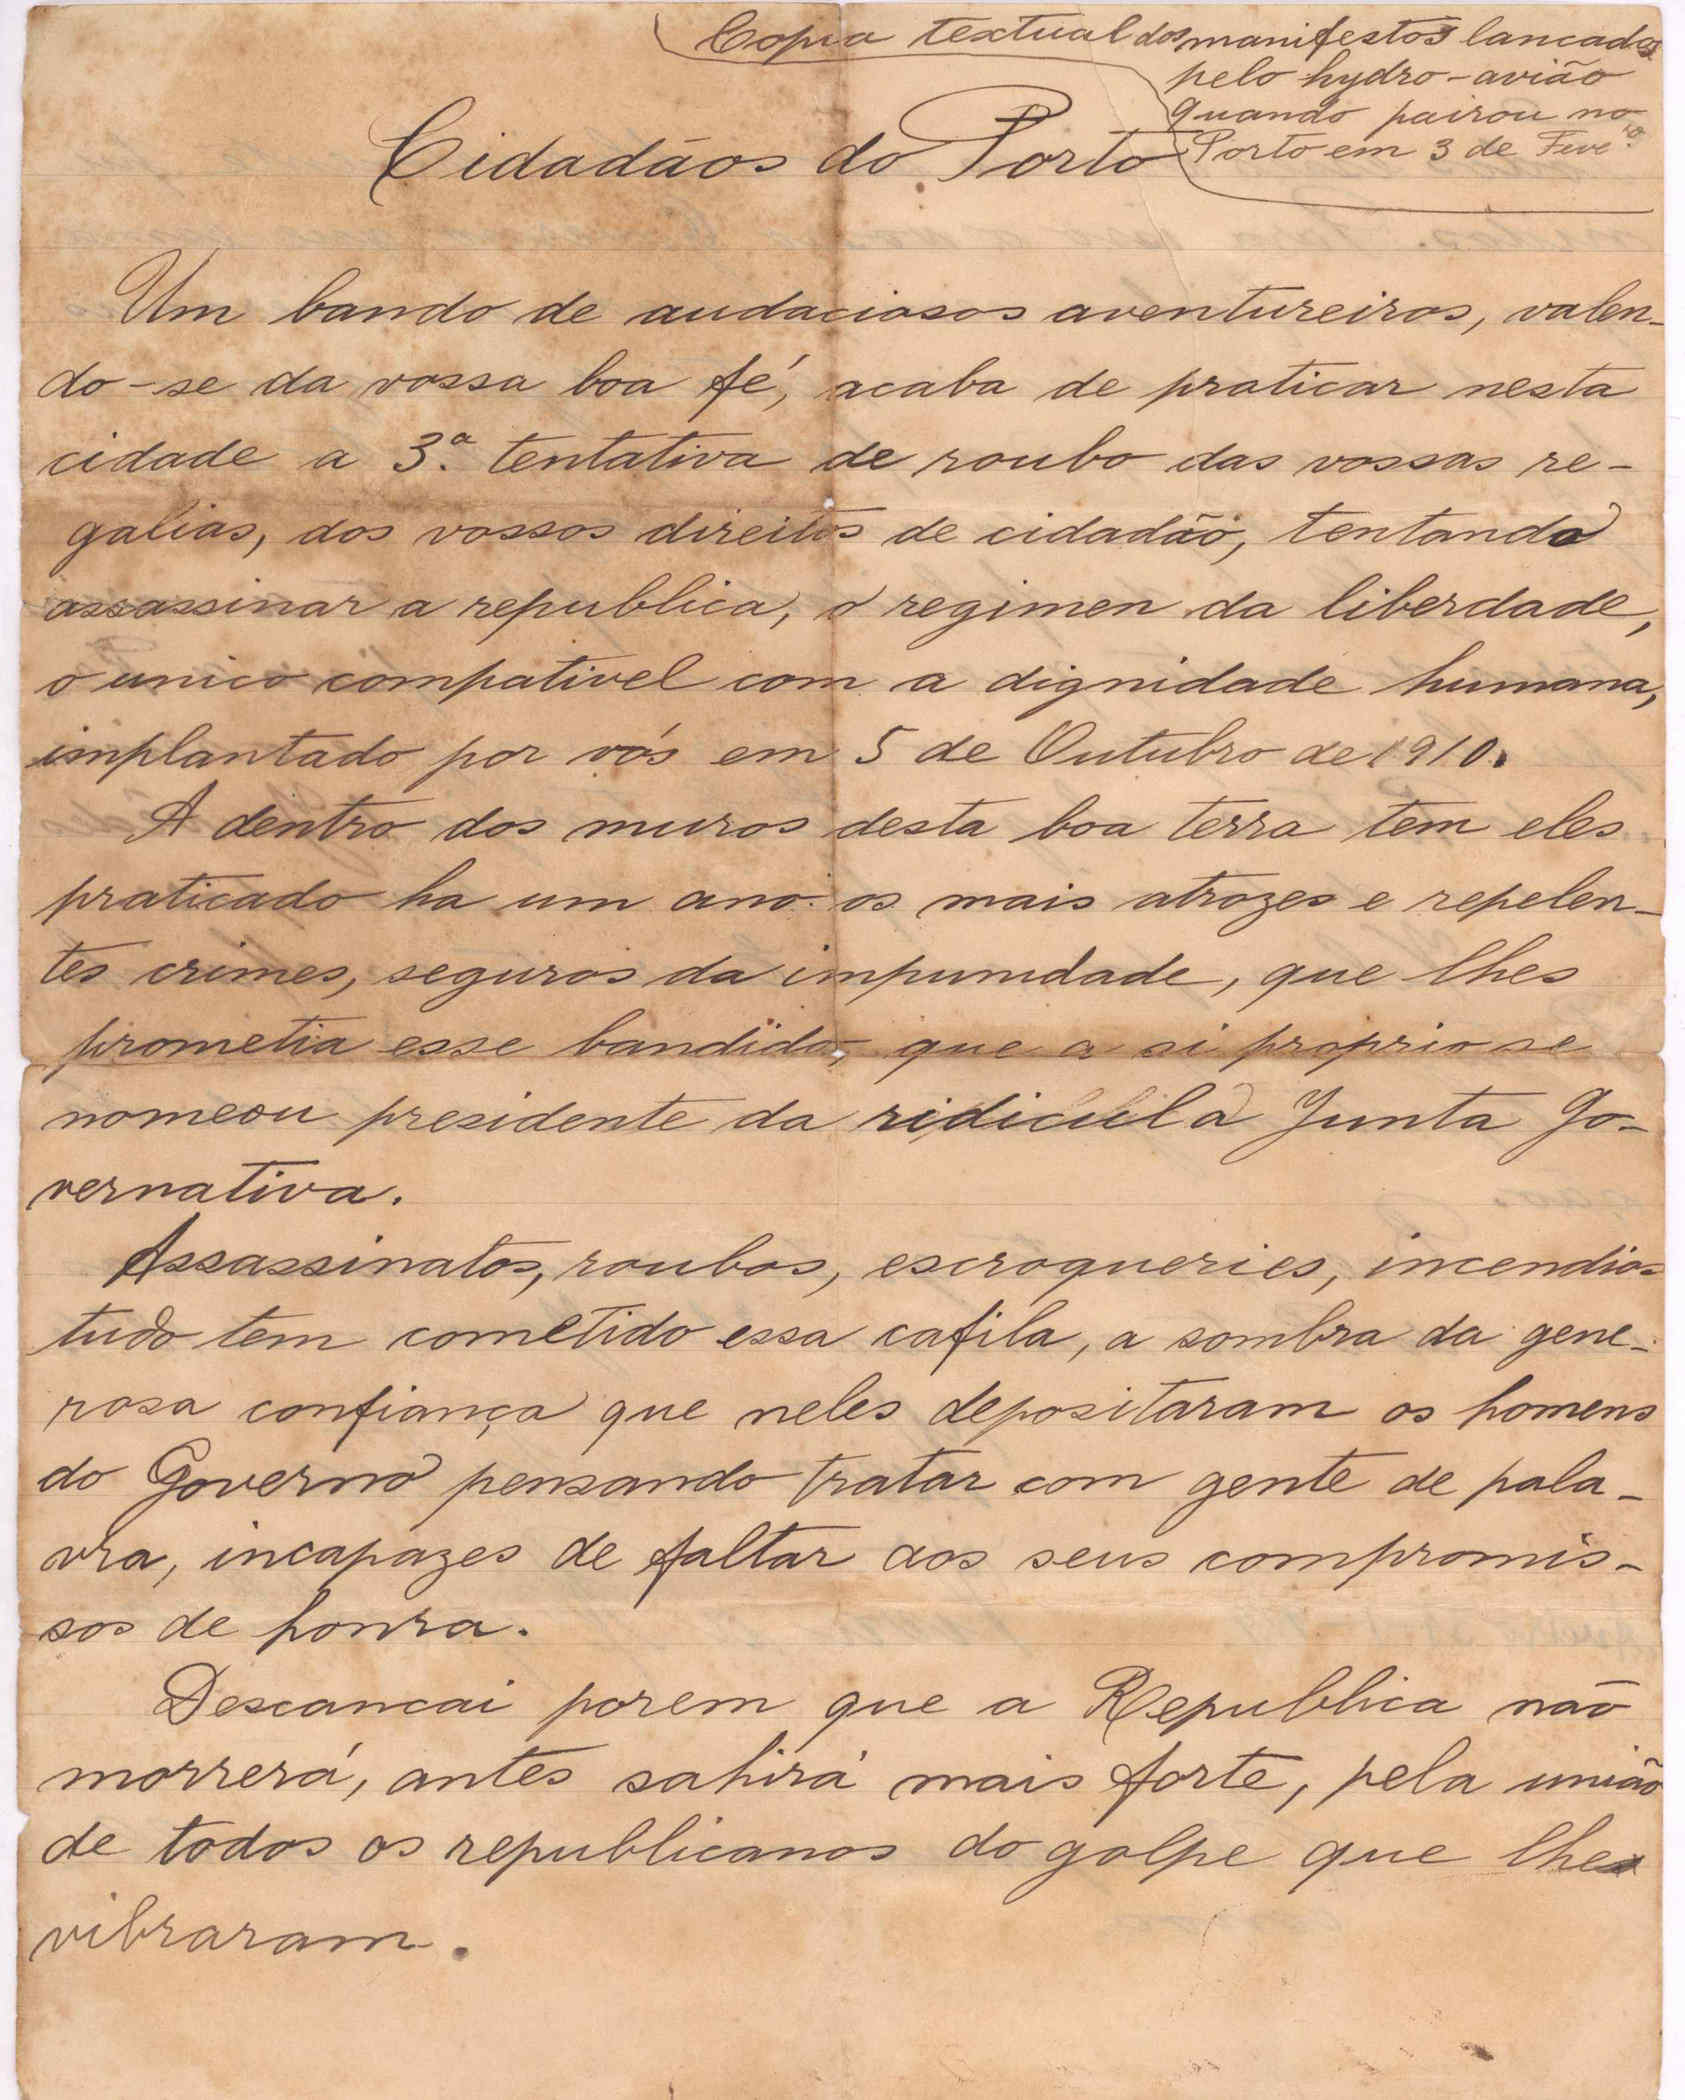 Copia textual dos manifestos lancados
pelo hydro-avião
quando pairou no
Porto em 3 de Feve.ro
Cidadãos do Porto
Um bando de audaciosos aventureiros, valen-
do-se da vossa boa fé, acaba de praticar nesta
cidade a 3.ª tentativa de roubo das vossas re-
galias, dos vossos direitos de cidadão, tentando
assassinar a republica, o regimen da liberdade,
o unico compativel com a dignidade humana,
implantado por vós em 5 de Outubro de 1910.
A dentro dos muros desta boa terra tem eles
praticado ha um ano os mais atrozes e repelen-
tes crimes, seguros da impunidade, que lhes
prometia esse bandido, que a si proprio se
nomeou presidente da ridicula Junta Go-
vernativa.
Assassinatos, roubos, escroqueries, incendios
tudo tem cometido essa cafila, a sombra da gene-
rosa confiança que neles depositaram os homens
do Governo pensando tratar com gente de pala-
vra, incapazes de faltar aos seus compromis-
sos de honra.
Descancai porem que a Republica não
morrerá, antes sahirá mais forte, pela união
de todos os republicanos do golpe que lhe
vibraram.